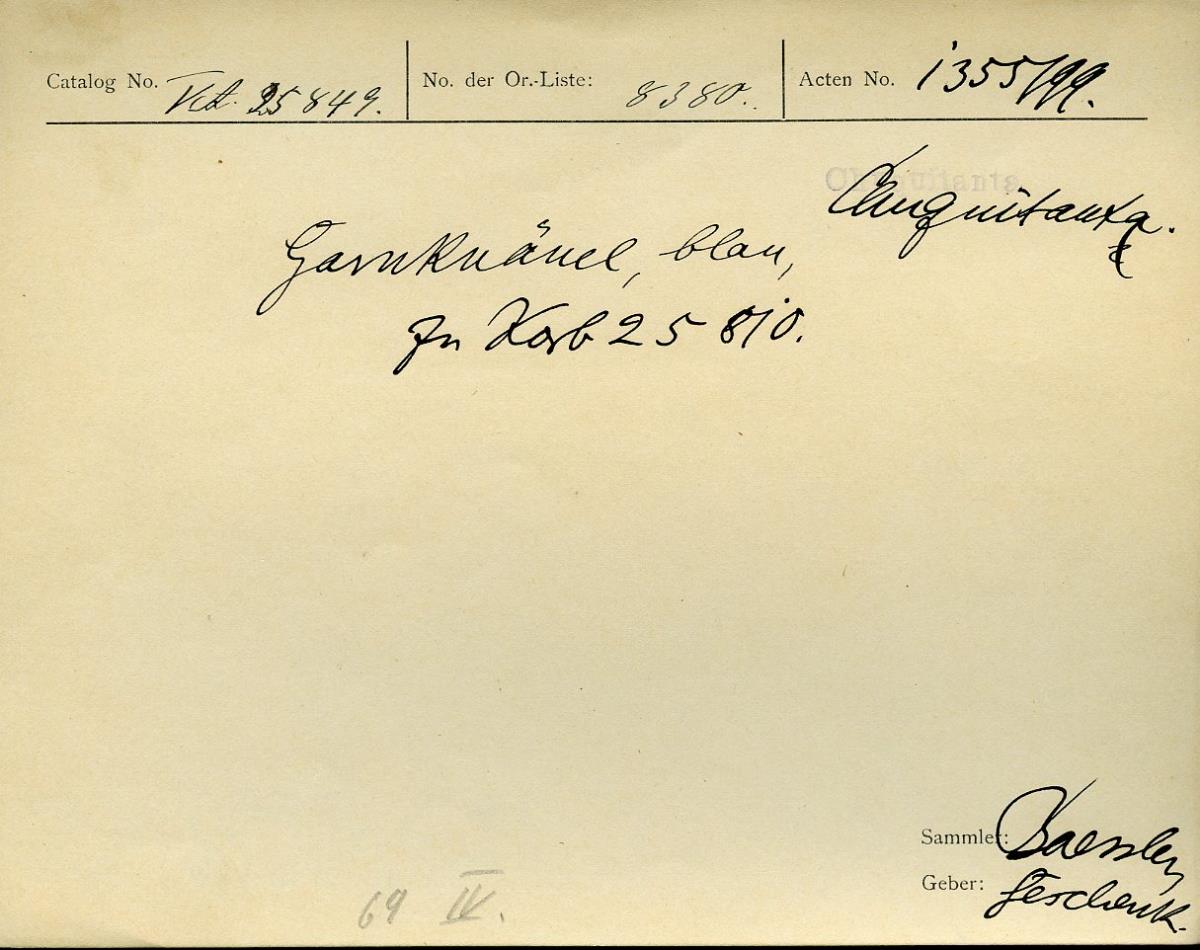 Catalog No. VA. 25849.
No. der Or.-Liste: 8380.
Acten No. 1355/99.
Chuquitanta.
Garnknäuel, blau,
zu Korb 25810.
Sammler: Baessler
Geber: Geschenk.
69 IV.